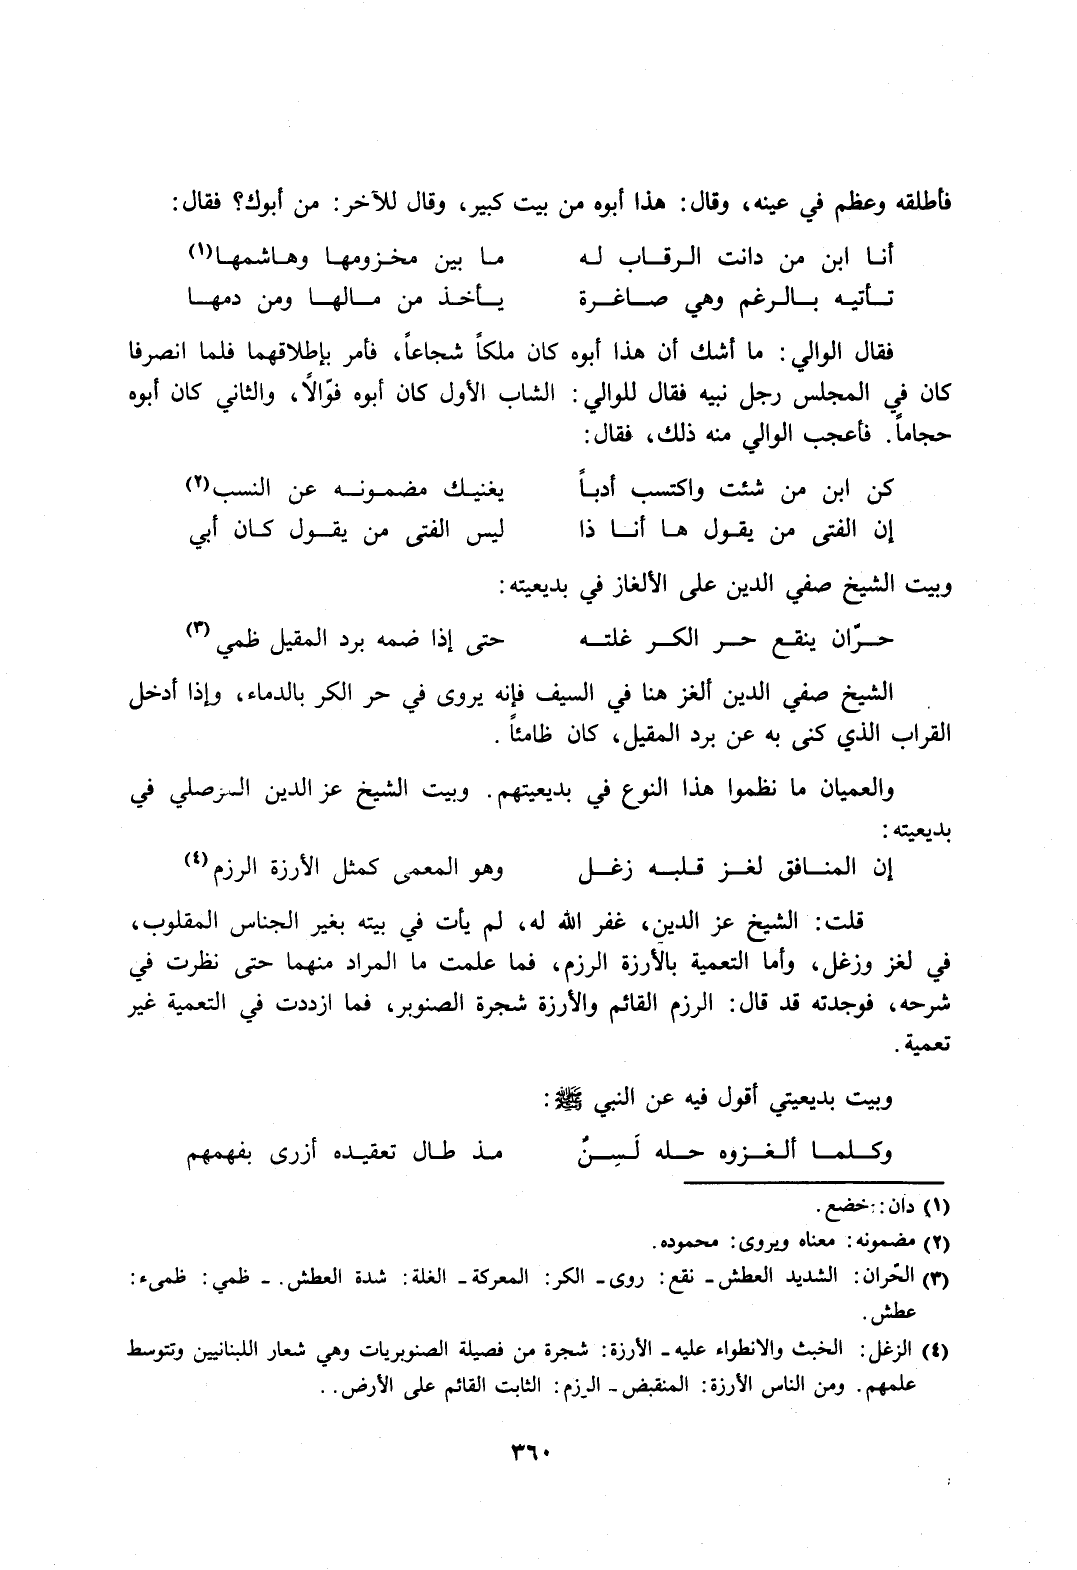 فأطلقه وعظم في عينه، وقال: هذا أبوه من بيت كبير، وقال للآخر: من أبوك؟ فقال:
أنا ابن من دانت الرقاب له ما بين مخزومها وهاشمها(١)
تأتيه بالرغم وهي صاغرة يأخذ من مالها ومن دمها
فقال الوالي: ما أشك أن هذا أبوه كان ملكاً شجاعاً، فأمر بإطلاقهما فلما انصرفا
كان في المجلس رجل نبيه فقال للوالي: الشاب الأول كان أبوه فوّالاً، والثاني كان أبوه
حجاماً. فأعجب الوالي منه ذلك، فقال:
كن ابن من شئت واكتسب أدباً يغنيك مضمونه عن النسب(٢)
إن الفتى من يقول ها أنا ذا ليس الفتى من يقول كان أبي
وبيت الشيخ صفي الدين على الألغاز في بديعيته:
حرّان ينقع حر الكر غلته حتى إذا ضمه برد المقيل ظمي(٣)
الشيخ صفي الدين ألغز هنا في السيف فإنه يروى في حر الكر بالدماء، وإذا أدخل
القراب الذي كنى به عن برد المقيل، كان ظامئاً.
والعميان ما نظموا هذا النوع في بديعيتهم. وبيت الشيخ عز الدين الموصلي في
بديعيته:
إن المنافق لغز قلبه زغل وهو المعمى كمثل الأرزة الرزم(٤)
قلت: الشيخ عز الدين، غفر الله له، لم يأت في بيته بغير الجناس المقلوب،
في لغز وزغل، وأما التعمية بالأرزة الرزم، فما علمت ما المراد منهما حتى نظرت في
شرحه، فوجدته قد قال: الرزم القائم والأرزة شجرة الصنوبر، فما ازددت في التعمية غير
تعمية.
وبيت بديعيتي أقول فيه عن النبي ﷺ:
وكلما ألغزوه حله لَسِنٌ مذ طال تعقيده أزرى بفهمهم
(١) دان: خضع.
(٢) مضمونه: معناه ويروى: محموده.
(٣) الحّران: الشديد العطش ـ نقع: روى ـ الكر: المعركة ـ الغلة: شدة العطش. ـ ظمي: ظمىء:
عطش.
(٤) الزغل: الخبث والانطواء عليه ـ الأرزة: شجرة من فصيلة الصنوبريات وهي شعار اللبنانيين وتتوسط
علمهم. ومن الناس الأرزة: المنقبض ـ الرزم: الثابت القائم على الأرض..
٣٦٠